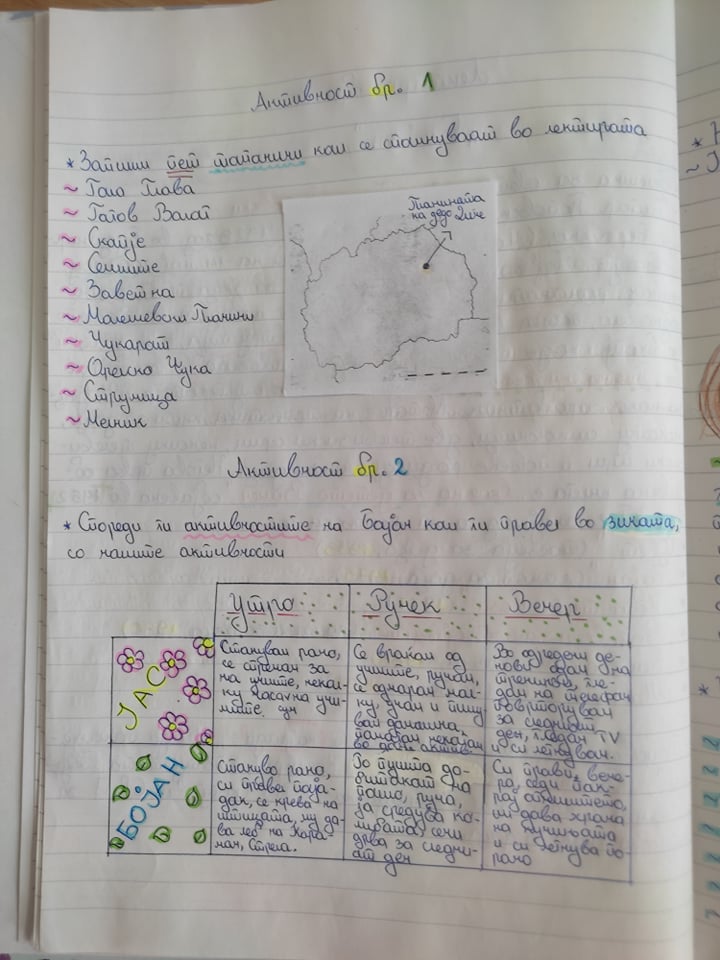 Активност бр. 1
* Запиши пет топоними кои се спомнуваат во лектирата
~ Гола Глава
~ Попов Валог
~ Скопје
~ Селиште
~ Заветна
~ Малешевски Планини
~ Чукарот
~ Орелско Чука
~ Струмица
~ Мелник
Планината
на дедо Зиче
Активност бр. 2
* Спореди ги активностите на Бојан кои ги прави во зимата,
со нашите активности
Утро Ручек Вечер
ЈАС
Станувам рано,
се спремам за
на училиште, некол-
ку часа на учи-
лиште.
Се враќам од
училиште, ручам,
се одмарам мал-
ку, учам и пишу
вам домашна,
помагам некогаш
во дома
Во одредени де-
нови одам на
тренинзи, гле-
дам на телефон
повторувам
за следниот
ден, гледам TV
и си легнувам.
БОЈАН
Станува рано,
си прави поја-
док, се крева на
птицата, му да-
ва леб на Кара-
ман, Стрела.
Го пушта до-
битокот на
пашо, руча,
ја средува ко-
либата, сечи
дрва за следни-
от ден
Си прави вече-
ра, седи пок-
рај огништето,
им дава храна
на кучињата
и си легнува по-
рано